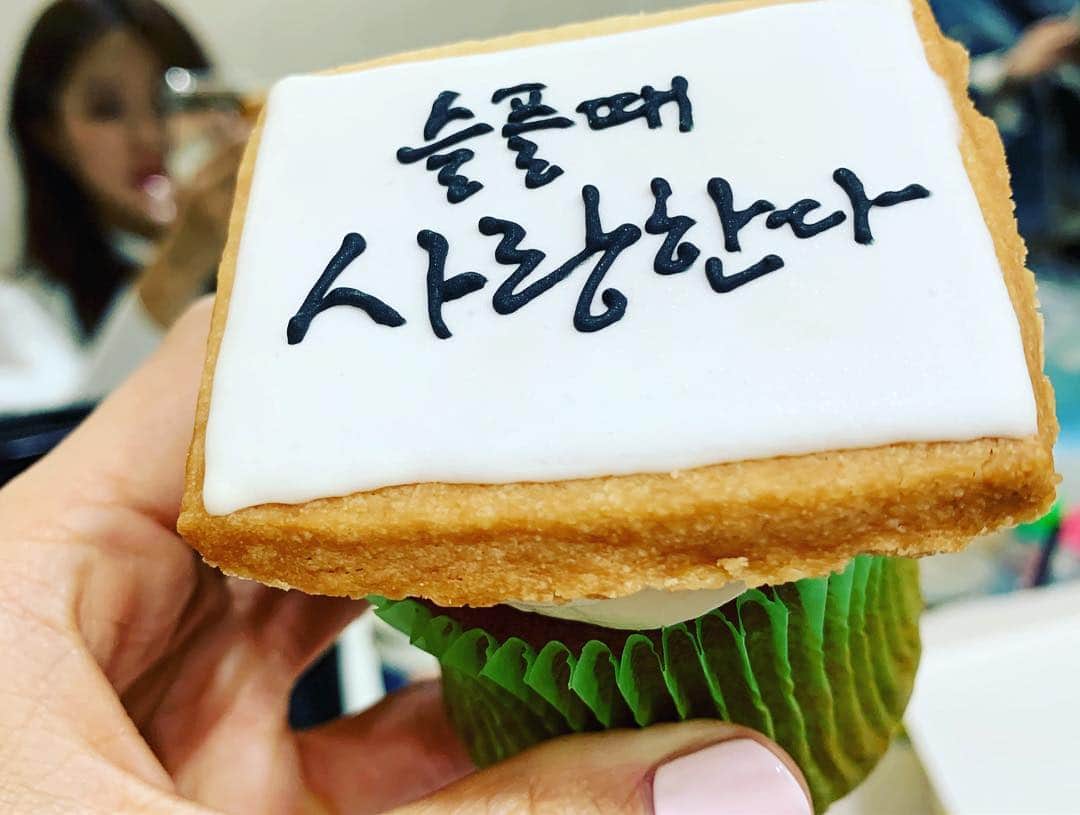 슬플때
사랑한다